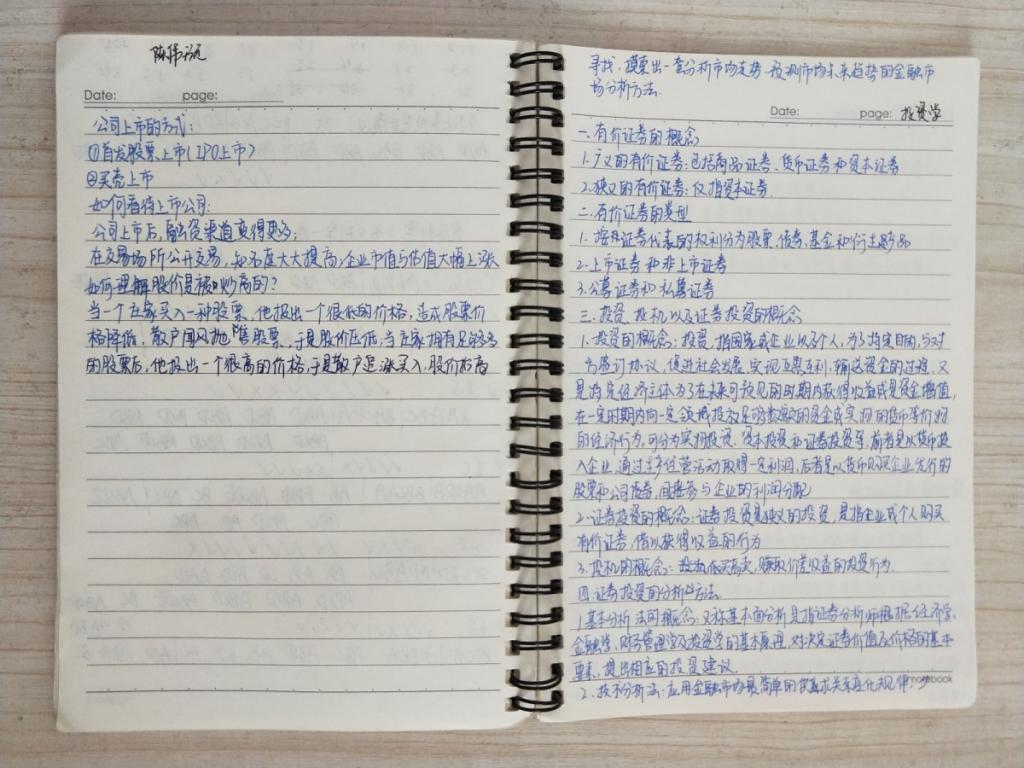 陈伟
Date: page:
公司上市的方式:
①首发股票上市(IPO上市)
②买壳上市
如何看待上市公司:
公司上市后,融资渠道变得更多;
在交易场所公开交易,知名度大大提高;企业市值与估值大幅上涨
如何理解股价是被炒高的?
当一个庄家买入一种股票,他报出一个很低的价格,造成股票价
格降低,散户闻风抛售股票,于是股价压低,当庄家拥有足够多
的股票后,他报出一个很高的价格,于是散户追涨买入,股价抬高
寻找、摸索出一套分析市场走势、预测市场未来趋势的金融市
场分析方法.
Date: page: 投资学
一.有价证券的概念
1.广义的有价证券:包括商品证券、货币证券和资本证券
2.狭义的有价证券:仅指资本证券.
二.有价证券的类型
1.按照证券代表的权利分为股票、债券、基金和衍生品
2.上市证券和非上市证券
3.公募证券和私募证券
三.投资、投机以及证券投资的概念
1.投资的概念:投资,指国家或企业以及个人,为了特定目的,与对
方签订协议,促进社会发展,实现互惠互利,输送资金的过程.又
是特定经济主体为了在未来可预见的时期内获得收益或是资金增值,
在一定时期内向一定领域投放足够数额的资金或实物的货币等价物
的经济行为,可分为实物投资、资本投资和证券投资等,前者是以货币投
入企业,通过生产经营活动取得一定利润,后者是以货币购买企业发行的
股票和公司债券,间接参与企业的利润分配
2.证券投资的概念:证券投资是狭义的投资,是指企业或个人购买
有价证券,借以获得收益的行为
3.投机的概念:投机低买高卖,赚取价差收益的投资行为
四.证券投资的分析方法
1.基本分析法的概念:又称基本面分析是指证券分析师根据经济学、
金融学、财务管理学及投资学的基本原理,对决定证券价值及价格的基本
要素,提出相应的投资建议.
notebook
2.技术分析法:应用金融市场最简单的供需求关系变化规律,